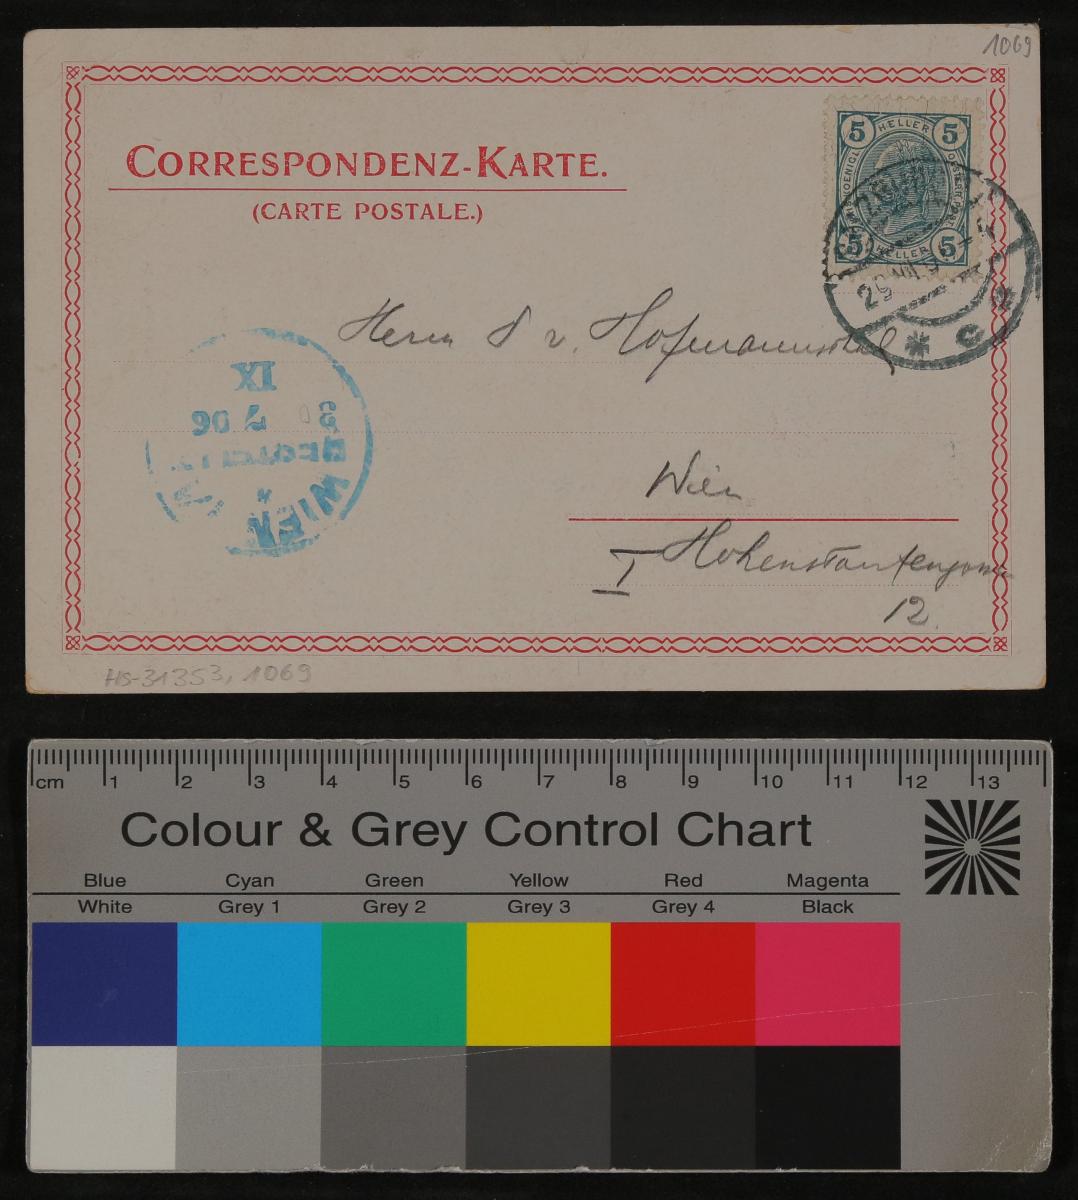 1069
CORRESPONDENZ-KARTE.
(CARTE POSTALE.)
5 HELLER 5
5 HELLER 5
29
* c 2
Herrn v. Hofmannsthal
IX
06
WIEN
Wien
I Hohenstaufengasse
12.
HS-31353, 1069
cm 1 2 3 4 5 6 7 8 9 10 11 12 13
Colour & Grey Control Chart
Blue Cyan Green Yellow Red Magenta
White Grey 1 Grey 2 Grey 3 Grey 4 Black